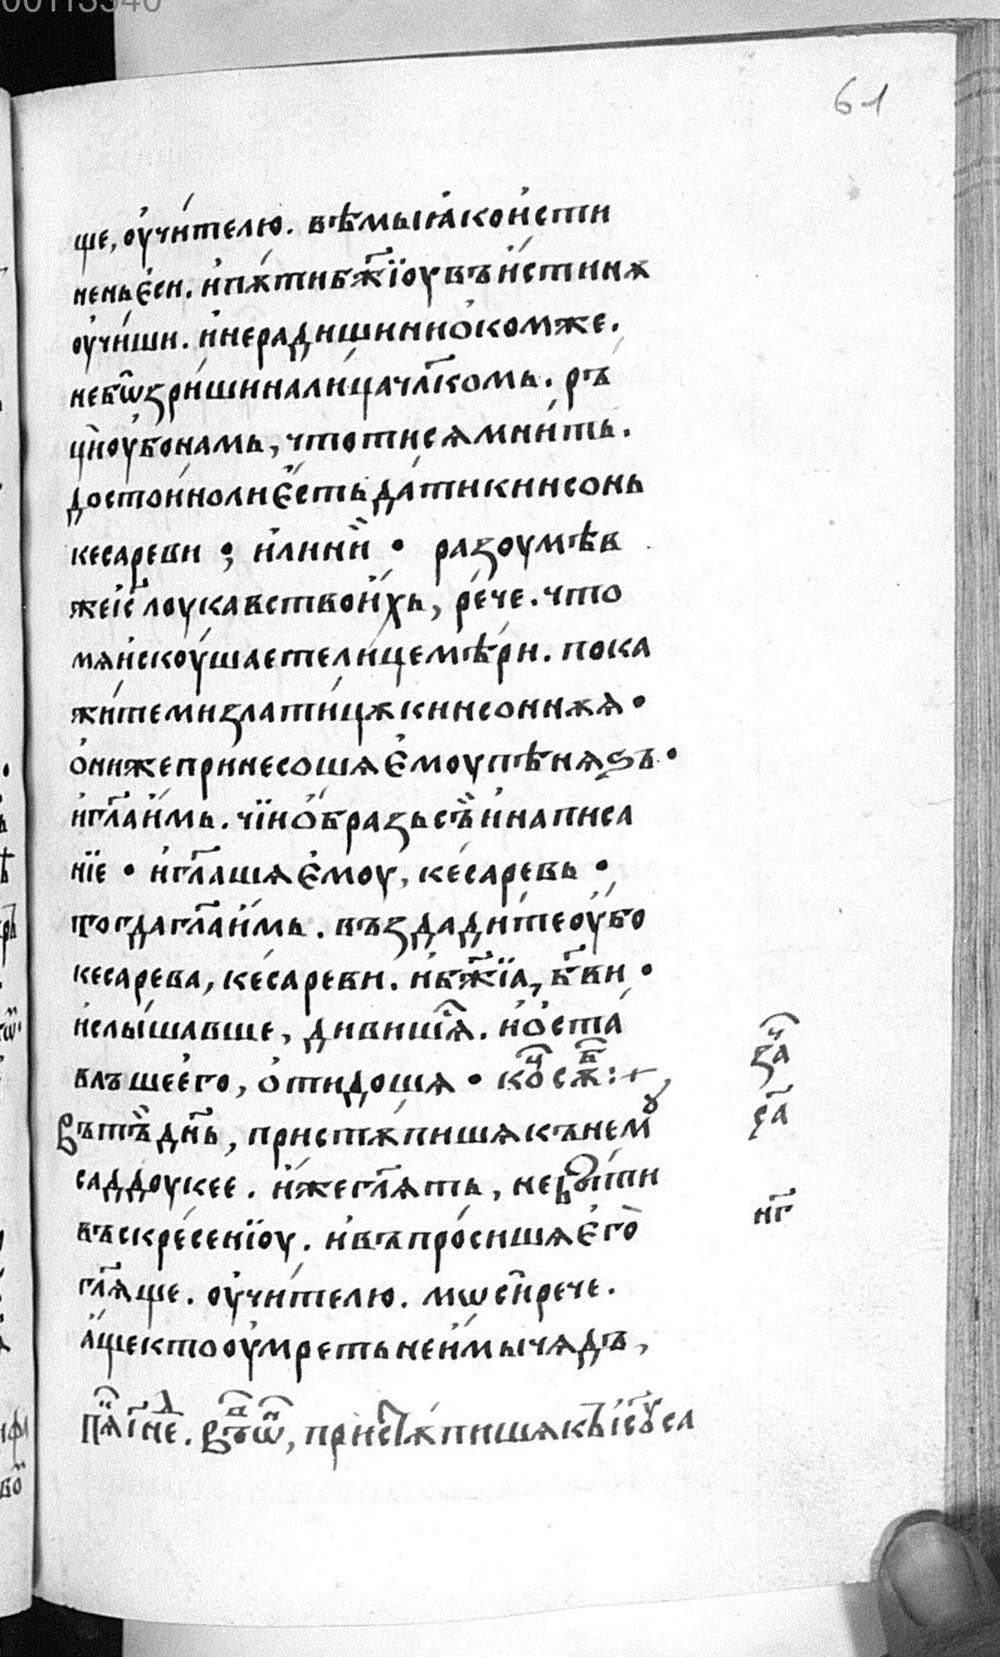 00113340
61
ще, оу҆чи́телю. вѣмы ꙗ҆ко и҆сти
нень є҆си. и҆ пѫти бж҃їоу въ и҆стинѫ
оу҆чи́ши. и҆ не радиши ни о҆ комже.
не бѡ зри́ши на лица чл҃комь. ръ
ци̏ оу҆бо намь, что ти сѧ мни́ть.
достоино ли є҆сть да́ти кинсонь
кесареви ; и҆ли ни̏ • разоумѣв
же і҆с҃ лоукавство и҆́хь, ре́че. что
мѧ и҆скоу́шаете лицемѣ́ри. пока
жи́те ми златицѫ кинсоннѫѧ •
о҆ни же принесошѧ є҆моу пѣнѧѕъ •
и҆ гл҃а и҆́мь. чїи о҆́бразь съ̏ и҆ написа
нїе • и҆ гл҃ашѧ є҆моу, ке́саревь •
тогда гл҃а и҆́мь. въздади́те оу҆́бо
кесарева, ке́сареви. и҆ бж҃їа, бг҃ви •
и҆ слы́шавше, дивишѧсѧ. и҆ о҆ста
влъше є҆го, о҆тидошѧ • ко҆ч сѫб :+
Въ тъ̏ дн҃ь, пристѫпишѧ къ немꙋ
саддоукее. и҆́же гл҃ѧть, не быти
въскре́сенїоу. и҆ въпро́сишѧ є҆го̀
гл҃ѧще. оу҆чи́телю. мѡѵси̏ рече.
а҆́ще кто оу҆мреть не и҆́мы чѧдъ,
зач҃
са҃
нг҃
пѧ і҃ не҃д. Въ ѡ҆н, пристѫпишѧ къ і҆с҃ꙋ са